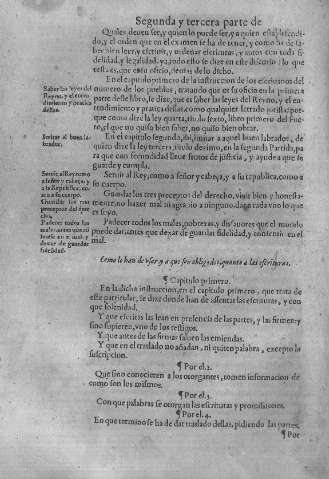 Segunda y tercera parte de
Quales deuen ser, y quien lo puede ser, y a quien esta defendi-
do, y el orden que en el examen se ha de tener, y como ha de sa-
ber bien leer, y escriuir, y ordenar escrituras, y autos con toda fi-
delidad, y legalidad. ya todo esto se dize en este discurso lo que
resta es, que este oficio, demas de lo dicho.
En el capitulo primero de la instruccion de los escriuanos del
numero de los pueblos, tratando que es su oficio en la primera
parte deste libro, se dize, que es saber las leyes del Reyno, y el en-
tendimiento y practica dellas como qualquier letrado justicia: por-
que como dize la ley quarta, titulo sexto, libro primero del Fue-
ro, el que no quisiere bien saber, no quiso bien obrar.
Saber las leyes del
Reyno, y el enten-
dimiento y practica
dellas.
En el capitulo segundo, dize, imitar a aquel buen labrador, de
quien dize la ley tercera, titulo dezimo, en la segunda Partida, pa-
ra que con fecundidad lleue frutos de justicia, y ayude a que se
guarde y cumpla.
Imitar al buen la-
brador.
Seruir al Rey, como a señor y cabeça, y a su republica, como a
su cuerpo.
Seruir al Rey como
a señor y cabeça, y
a la Republica, co-
mo a su cuerpo.
Guardar los tres preceptos del derecho, viuir bien y honesta-
mente, no hazer mal a ninguno, dar a cada vno lo que
es suyo.
Guardar los tres
preceptos del dere-
cho.
Padecer todos los males, pobrezas, y disfauores que el mundo
puede dar, antes que dexar de guardar fidelidad, y consentir en el
mal.
Padecer todos los
males antes que
dexar de guardar
fidelidad.
Como le han de vsar y a que son obligados quanto a las escrituras.
¶ Capitulo primero.
En la dicha instruccion, en el capitulo primero, que trata de
este particular, se dize donde han de assentar las escrituras, y con
que solenidad.
Y que escritas las lean en presencia de las partes, y las firmen: y
sino supieren, vno de los testigos.
Y que antes de las firmas saluen las emiendas.
Y que en el traslado no añadan, ni quiten palabra, excepto la
suscripcion.
¶ Por el.2.
Que sino conocieren a los otorgantes, tomen informacion de
como son los mismos.
¶ Por el.3.
Con que palabras se otorgan las escrituras y promissiones.
¶ Por el.4.
En que termino se ha de dar traslado dellas, pidiendo las partes.
¶ Por